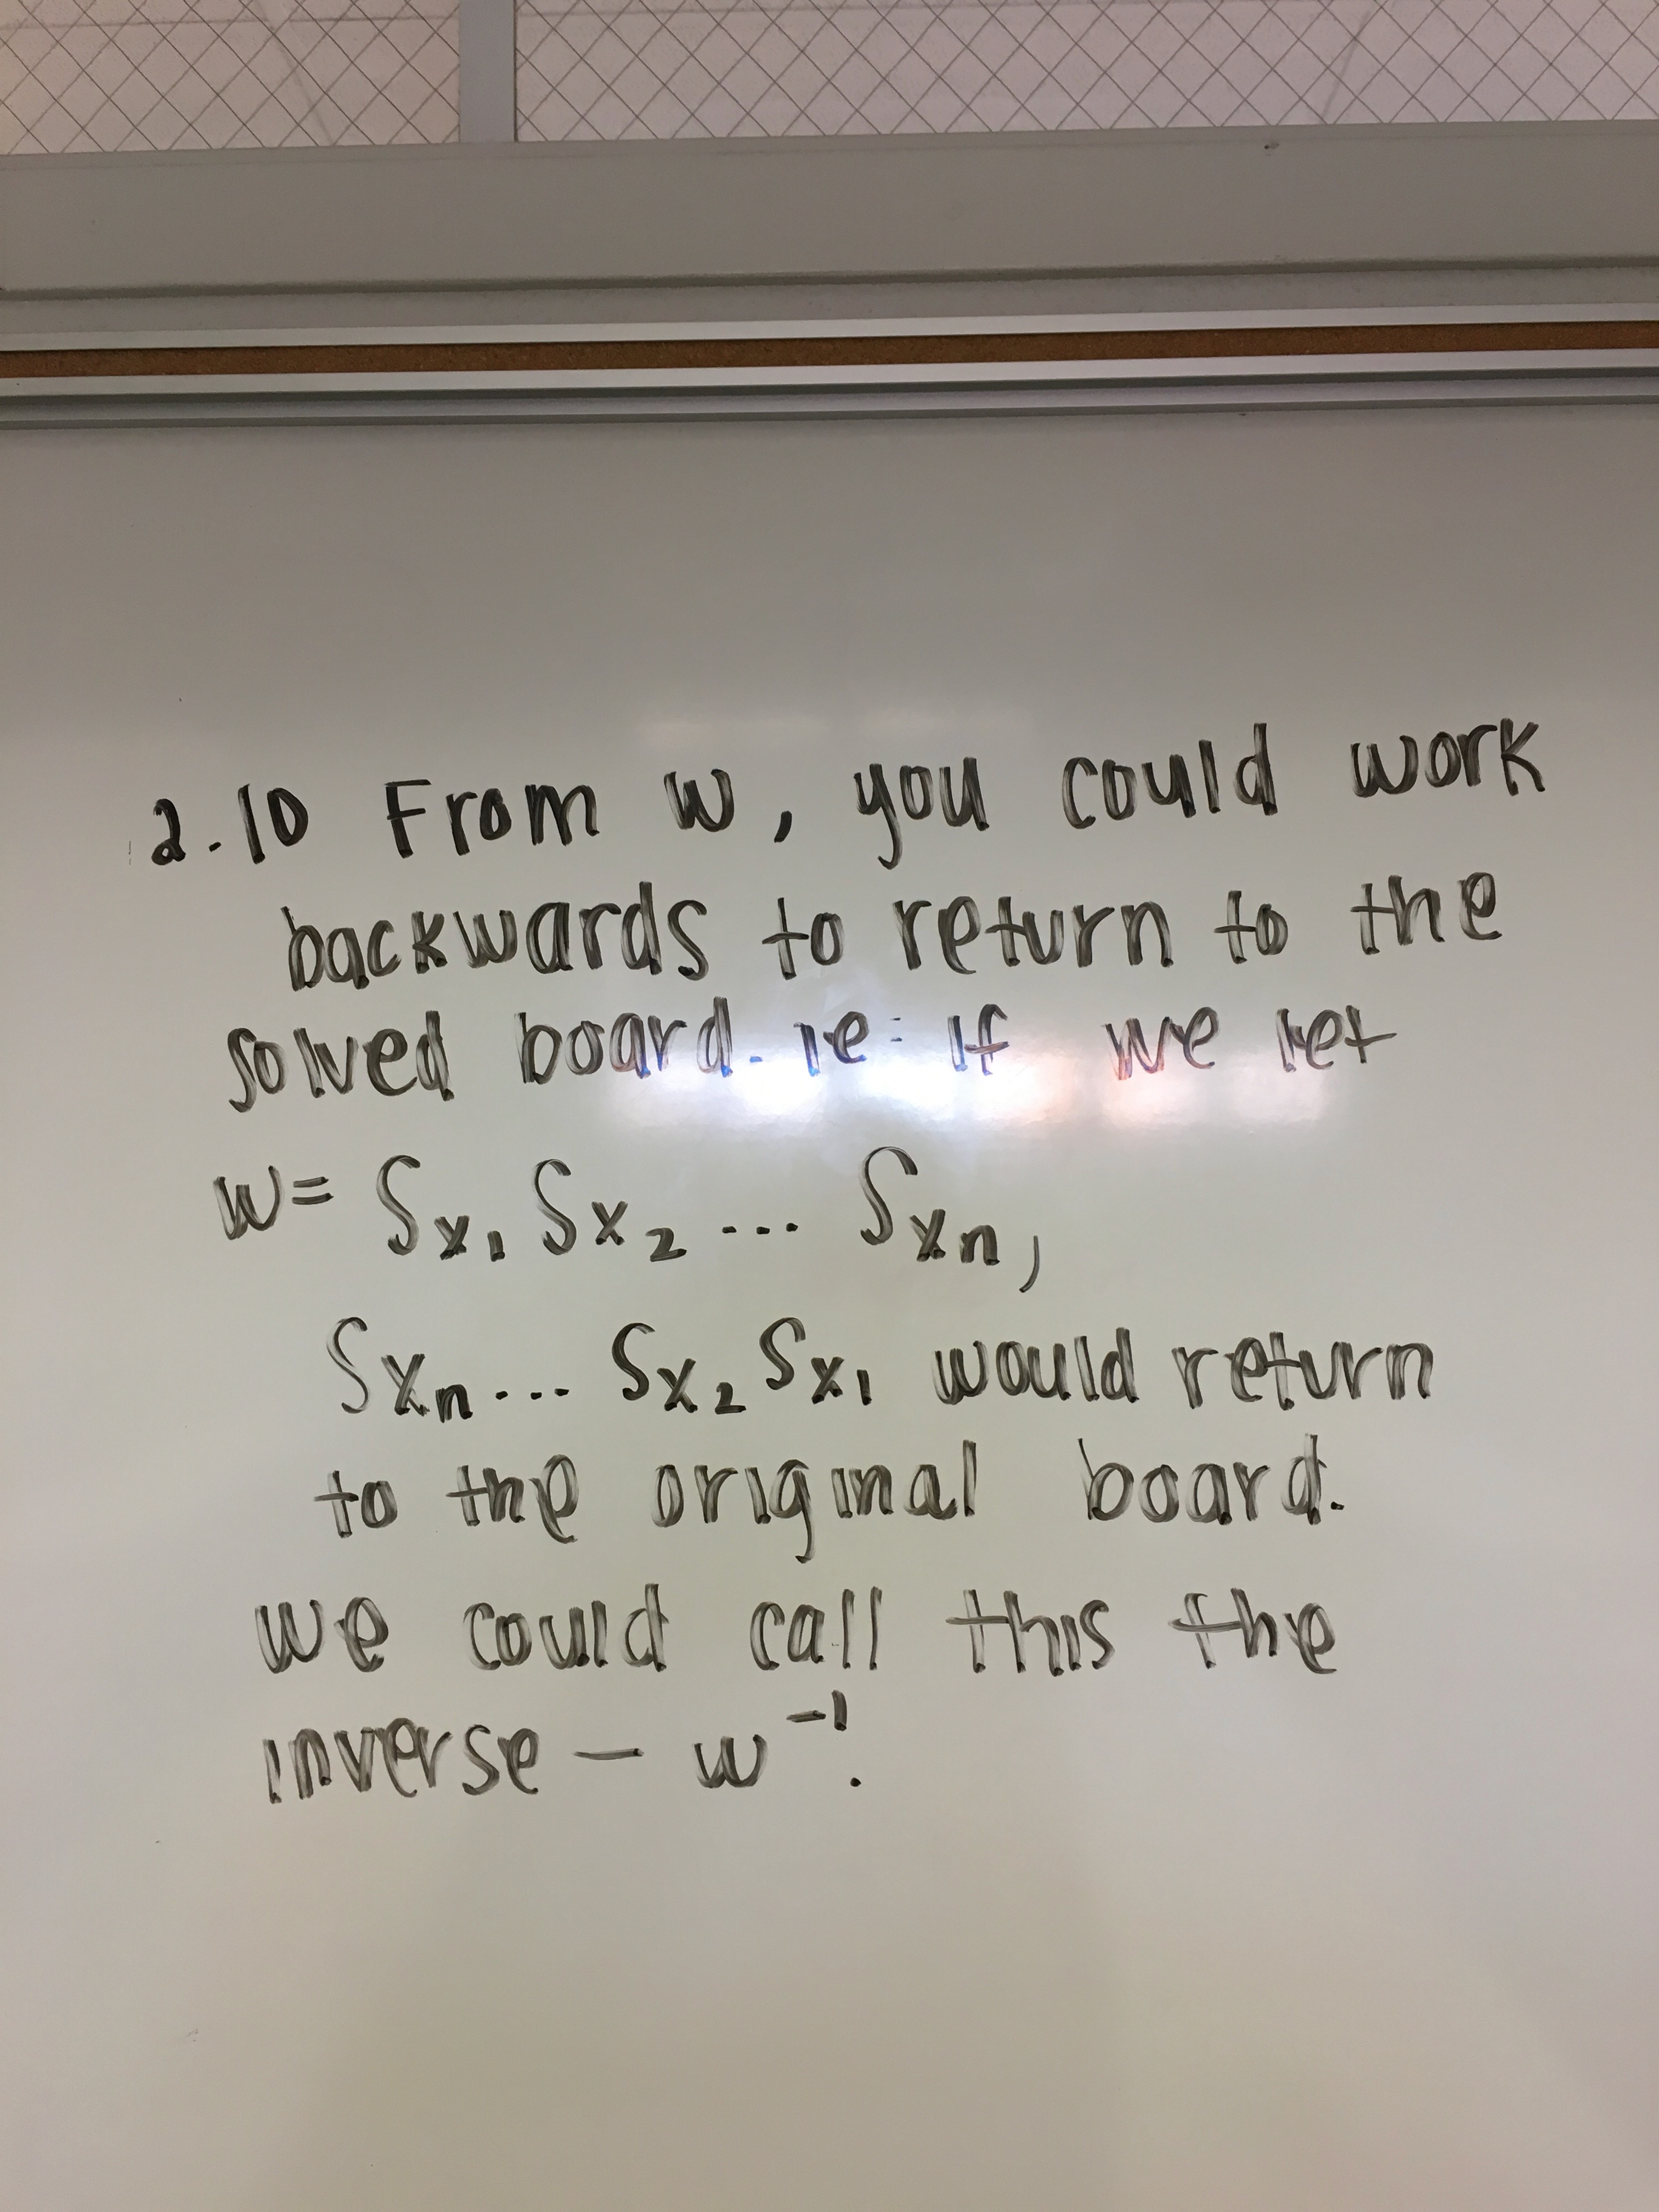 2.10 From w, you could work
backwards to return to the
solved board. ie: if we let
w= Sx₁ Sx₂ ... Sxₙ,
Sxₙ ... Sx₂ Sx₁ would return
to the original board.
we could call this the
inverse — w⁻¹.